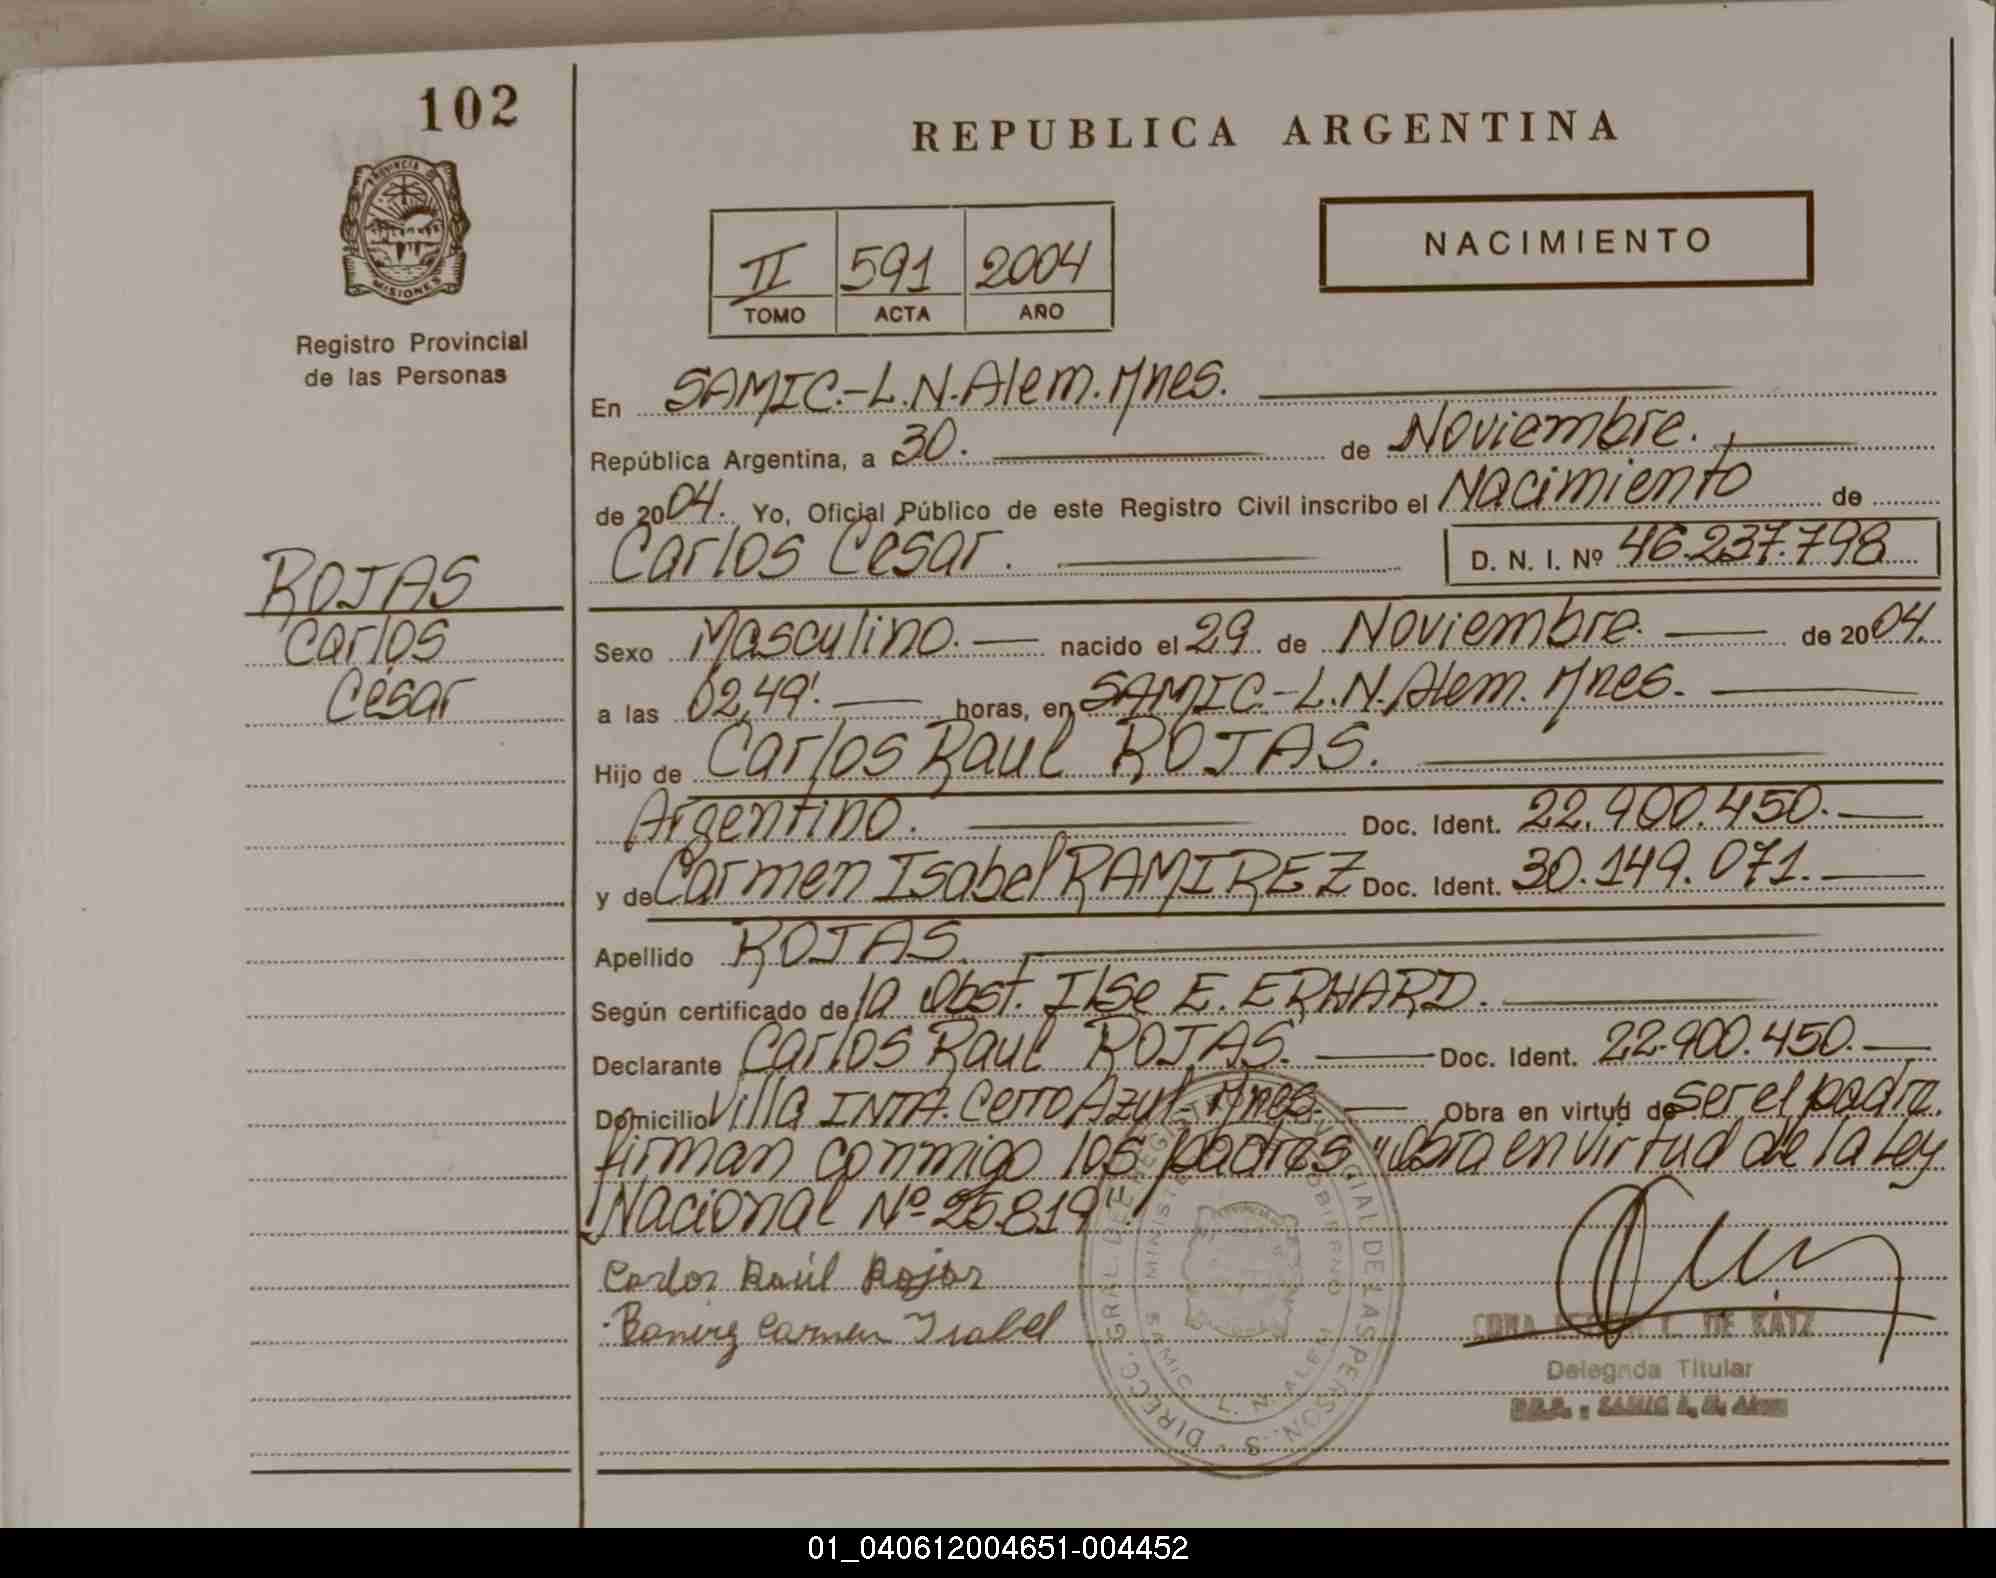 102
PROVINCIA DE
MISIONES
Registro Provincial
de las Personas
ROJAS
Carlos
César
REPUBLICA ARGENTINA
NACIMIENTO
II 591 2004
TOMO ACTA AÑO
En SAMIC.-L.N.Alem.Mnes.
República Argentina, a 30. de Noviembre.
de 2004. Yo, Oficial Público de este Registro Civil inscribo el Nacimiento de
Carlos César. D. N. I. Nº 46.237.798
Sexo Masculino. nacido el 29 de Noviembre. de 2004.
a las 02,49'. horas, en SAMIC.-L.N.Alem. Mnes.
Hijo de Carlos Raul ROJAS.
Argentino. Doc. Ident. 22.900.450.
y de Carmen Isabel RAMIREZ Doc. Ident. 30.149.071.
Apellido ROJAS.
Según certificado de la Obst. Ilse E. ERHARD.
Declarante Carlos Raul ROJAS. Doc. Ident. 22.900.450.
Domicilio Villa INTA. Cerro Azul. Mnes. Obra en virtud de ser el padre.
firman conmigo los padres "Obra en virtud de la Ley
Nacional Nº 25.819".
Carlos Raúl Rojas
Ramirez Carmen Isabel
DIRECC. GRAL. DEL REGISTRO PROVINCIAL DE LAS PERSONAS
MINISTERIO GOBIERNO
SAMIC L. N. ALEM
DE KATZ
Delegada Titular
SAMIC L. N. Alem
01_040612004651-004452